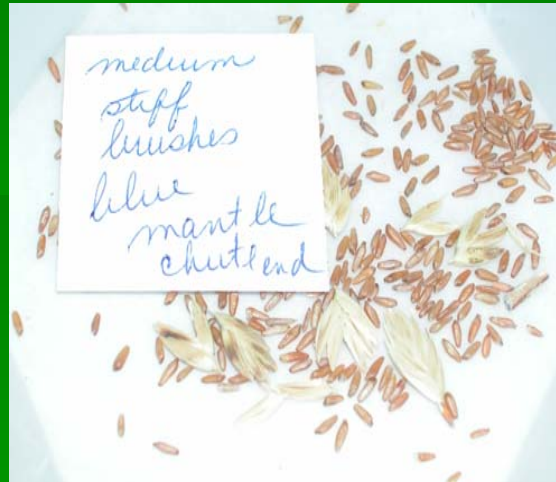 medium
stiff
brushes
blue
mantle
chute end